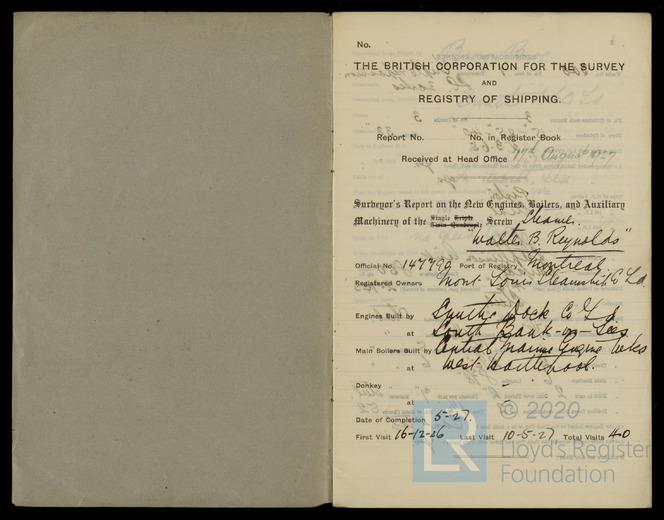 No.
THE BRITISH CORPORATION FOR THE SURVEY
AND
REGISTRY OF SHIPPING.
Report No. No. in Register Book
Received at Head Office 17th August 1927
Surveyor's Report on the New Engines, Boilers, and Auxiliary
Machinery of the Single Triple Twin Quadruple Screw Steamer
"Walter B. Reynolds"
Official No. 147790 Port of Registry Montreal
Registered Owners Mont Louis Steamship Co Ld.
Engines Built by Smith's Dock Co Ld.
at South Bank-on-Tees
Main Boilers Built by Central Marine Engine Works
at West Hartlepool.
Donkey -
at -
Date of Completion 5-27.
First Visit 16-12-26 Last Visit 10-5-27 Total Visits 40
© 2020
LR
Lloyd's Register
Foundation